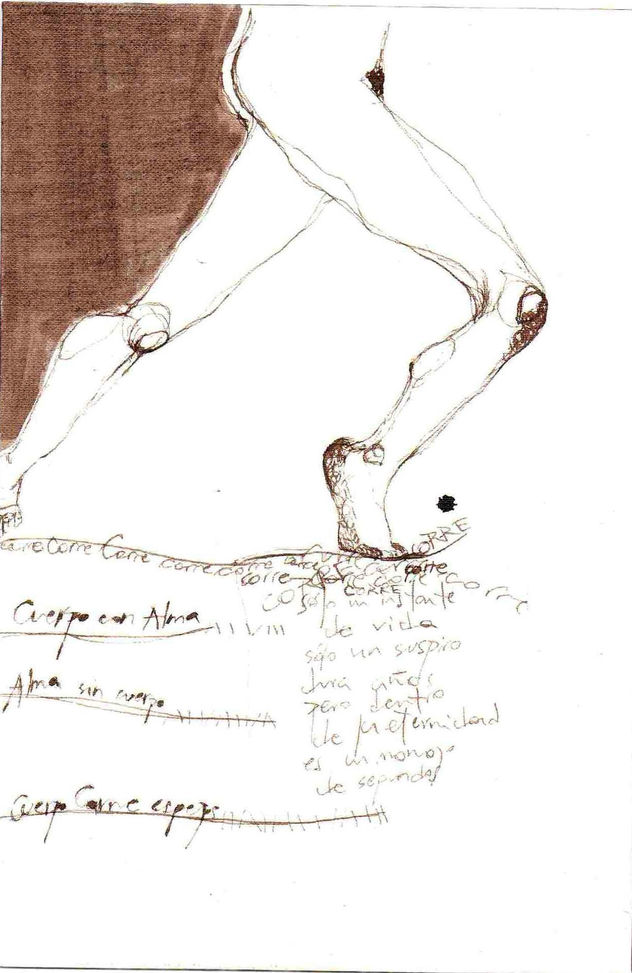 corre Corre Corre corre corre corre corre CORRE
corre corre corre corre corre
CORRE
sólo un instante
de vida
sólo un suspiro
dura años
pero dentro
de mi eternidad
es un manojo
de segundos
Cuerpo con Alma
Alma sin cuerpo
Cuerpo Carne espejo